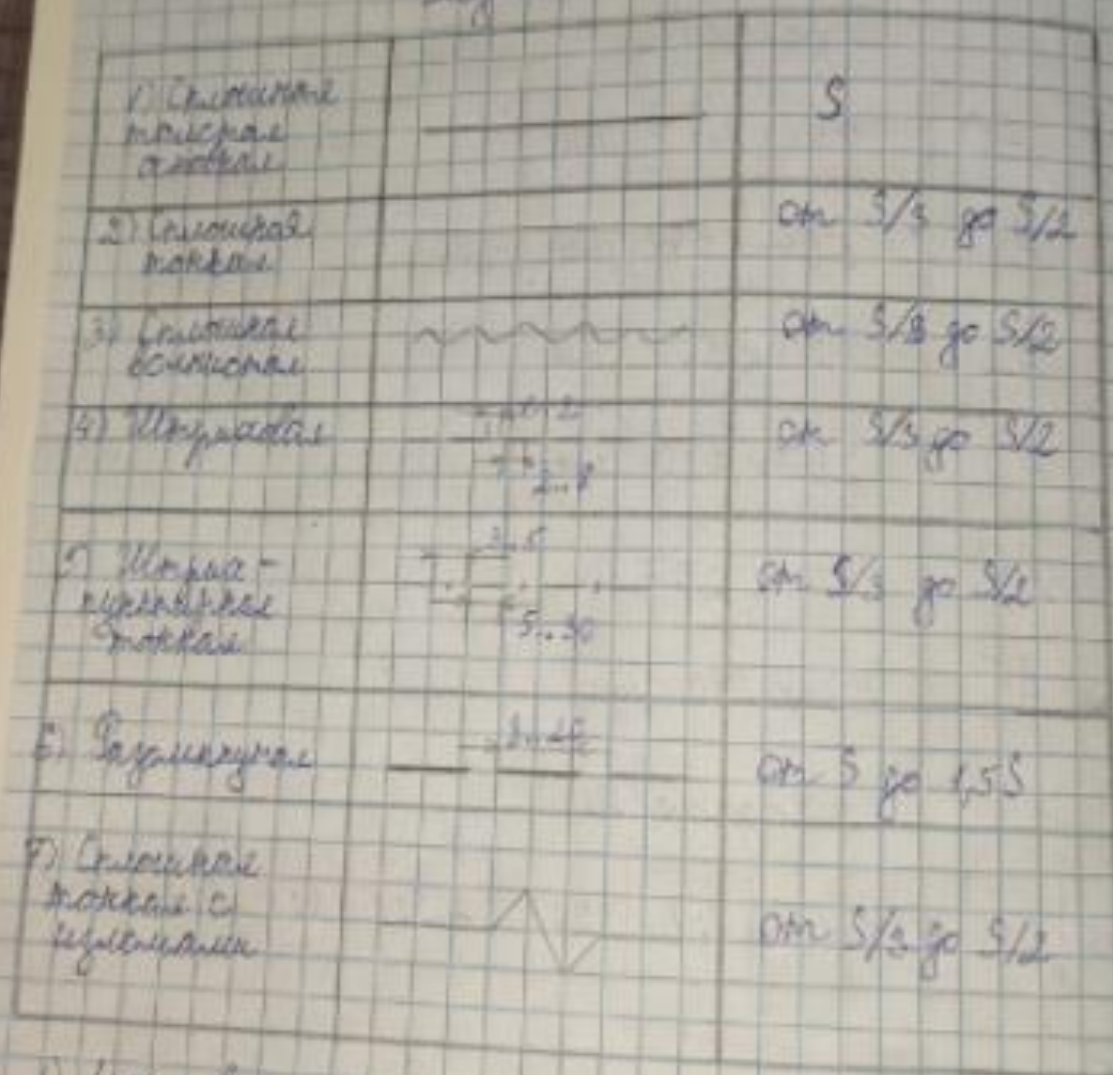 1) Сплошная
толстая
основная
S
2) Сплошная
тонкая
от S/3 до S/2
3) Сплошная
волнистая
от S/3 до S/2
4) Штриховая
1..2
2..8
от S/3 до S/2
5) Штрих-
пунктирная
тонкая
3..5
5..30
от S/3 до S/2
6) Разомкнутая
от S до 1,5S
7) Сплошная
тонкая с
изломами
от S/3 до S/2